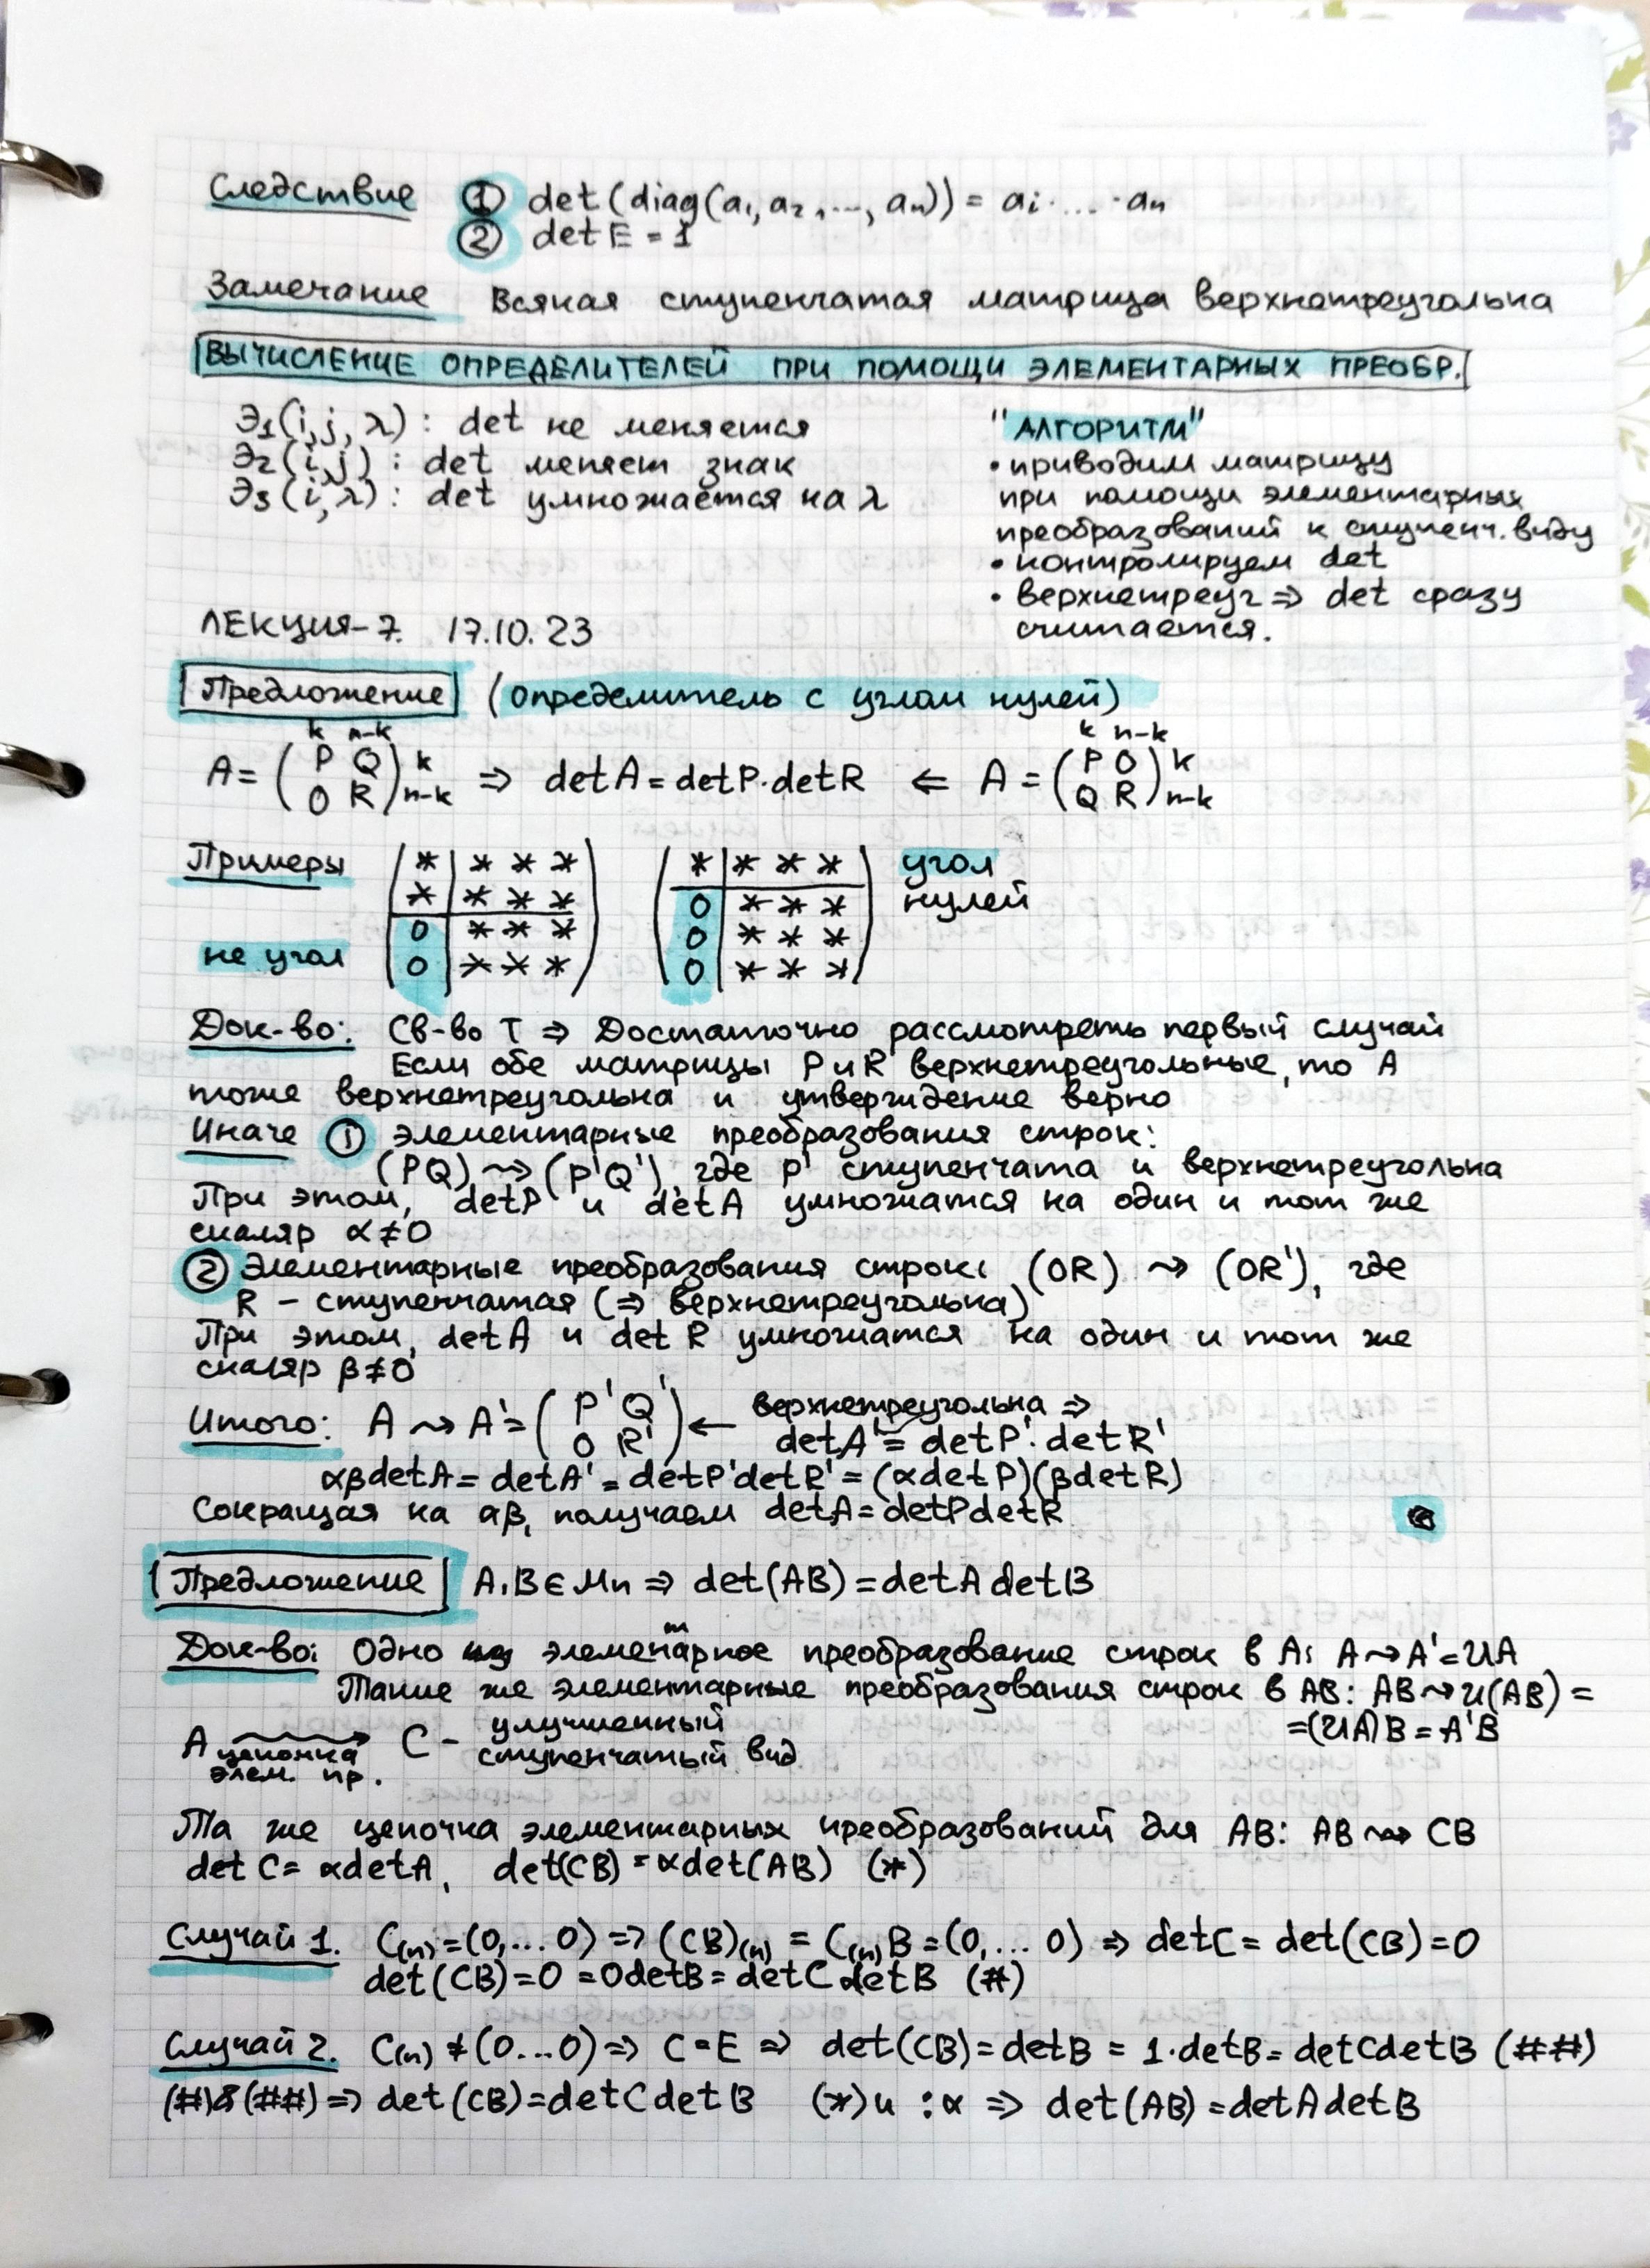 Следствие ① det(diag(a₁, a₂, ..., aₙ)) = aᵢ · ... · aₙ
② det E = 1
Замечание Всякая ступенчатая матрица верхнетреугольна
ВЫЧИСЛЕНИЕ ОПРЕДЕЛИТЕЛЕЙ ПРИ ПОМОЩИ ЭЛЕМЕНТАРНЫХ ПРЕОБР.
Э₁(i, j, λ) : det не меняется
Э₂(i, j) : det меняет знак
Э₃(i, λ) : det умножается на λ
"АЛГОРИТМ"
• приводим матрицу
при помощи элементарных
преобразований к ступенч. виду
• контролируем det
• верхнетреуг ⇒ det сразу
считается.
ЛЕКЦИЯ-7. 17.10.23
Предложение (определитель с углом нулей)
k n-k k n-k
A = ( P Q ) k ⇒ det A = det P · det R ⇐ A = ( P O ) k
( O R ) n-k ( Q R ) n-k
Примеры ( * | * * * ) ( * | * * * ) угол
( * | * * * ) ( 0 | * * * ) нулей
( 0 | * * * ) ( 0 | * * * )
не угол ( 0 | * * * ) ( 0 | * * * )
Док-во: Св-во T ⇒ Достаточно рассмотреть первый случай
Если обе матрицы P и R верхнетреугольные, то A
тоже верхнетреугольна и утверждение верно
Иначе ① элементарные преобразования строк:
(PQ) ⇝ (P'Q'), где P' ступенчата и верхнетреугольна
При этом, det P и det A умножатся на один и тот же
скаляр α ≠ 0
② Элементарные преобразования строк: (OR) ⇝ (OR'), где
R - ступенчатая (⇒ верхнетреугольна)
При этом, det A и det R умножатся на один и тот же
скаляр β ≠ 0
Итого: A ⇝ A' = ( P' Q' ) ← верхнетреугольна ⇒
( O R' ) det A' = det P' · det R'
αβ det A = det A' = det P' det R' = (α det P)(β det R)
Сокращая на αβ, получаем det A = det P det R
Предложение A, B ∈ Mₙ ⇒ det(AB) = det A det B
Док-во: Одно элементарное преобразование строк в A: A ⇝ A' = UA
Такие же элементарные преобразования строк в AB: AB ⇝ U(AB) =
= (UA)B = A'B
A ⇝ C - улучшенный
цепочка ступенчатый вид
элем. пр.
Та же цепочка элементарных преобразований для AB: AB ⇝ CB
det C = α det A, det(CB) = α det(AB) (*)
Случай 1. C₍ₙ₎ = (0, ... 0) ⇒ (CB)₍ₙ₎ = C₍ₙ₎B = (0, ... 0) ⇒ det C = det(CB) = 0
det(CB) = 0 = 0 det B = det C det B (#)
Случай 2. C₍ₙ₎ ≠ (0...0) ⇒ C = E ⇒ det(CB) = det B = 1 · det B = det C det B (##)
(#) & (##) ⇒ det(CB) = det C det B (*) и : α ⇒ det(AB) = det A det B